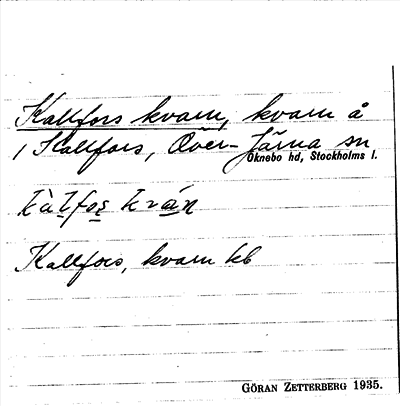 Kallfors kvarn, kvarn å
/ Kallfors, Över-Järna sn
Öknebo hd, Stockholms l.
kàlfos kván
Kallfors, kvarn kb
GÖRAN ZETTERBERG 1935.